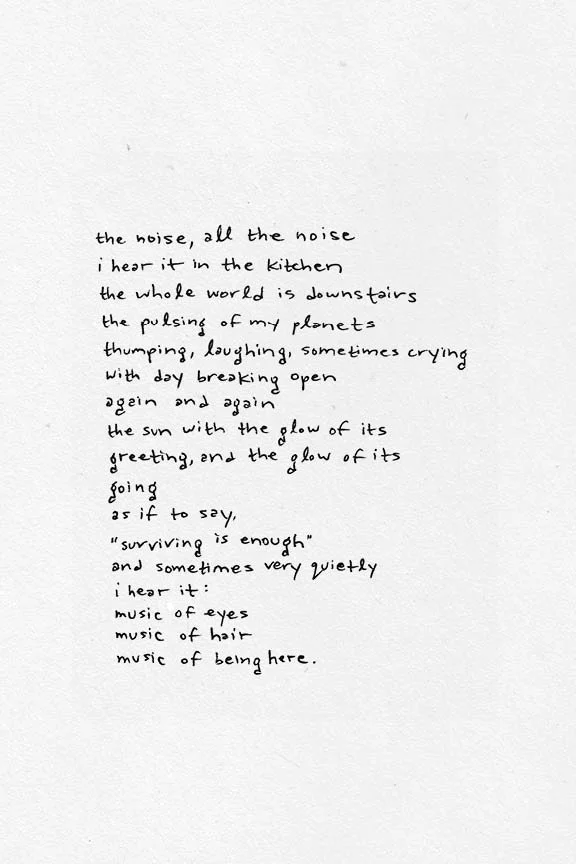 the noise, all the noise
i hear it in the kitchen
the whole world is downstairs
the pulsing of my planets
thumping, laughing, sometimes crying
with day breaking open
again and again
the sun with the glow of its
greeting, and the glow of its
going
as if to say,
"surviving is enough"
and sometimes very quietly
i hear it:
music of eyes
music of hair
music of being here.